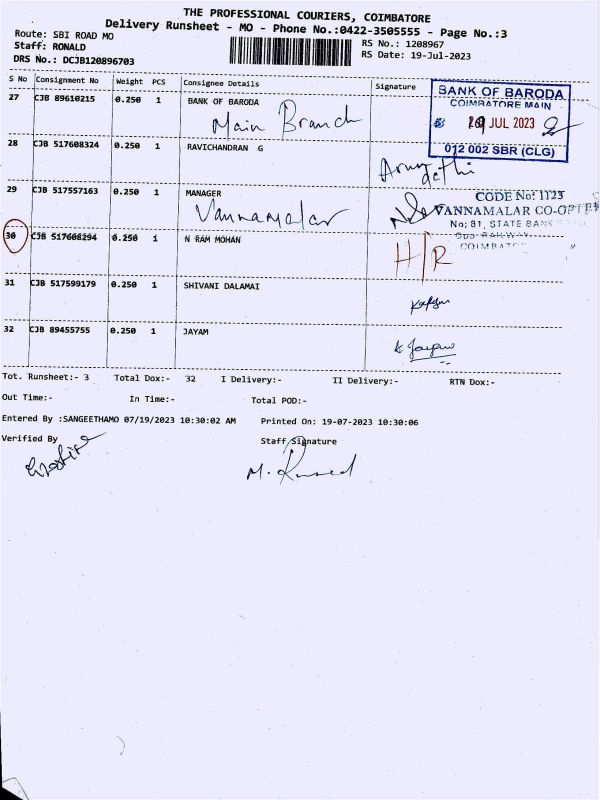 THE PROFESSIONAL COURIERS, COIMBATORE
Delivery Runsheet - MO - Phone No.:0422-3505555 - Page No.:3
Route: SBI ROAD MO
RS No.: 1208967
Staff: RONALD
RS Date: 19-Jul-2023
DRS No.: DCJB120896703
S No Consignment No Weight PCS Consignee Details Signature
27 CJB 89610215 0.250 1 BANK OF BARODA
Main Branch
BANK OF BARODA
COIMBATORE MAIN
JUL 2023
012 002 SBR (CLG)
28 CJB 517608324 0.250 1 RAVICHANDRAN G
29 CJB 517557163 0.250 1 MANAGER
Vannamalar
CODE No: 1123
VANNAMALAR CO-OPTEX
No; 81, STATE BANK
30 CJB 517608294 0.250 1 N RAM MOHAN
H/R
31 CJB 517599179 0.250 1 SHIVANI DALAMAI
32 CJB 89455755 0.250 1 JAYAM
Tot. Runsheet:- 3 Total Dox:- 32 I Delivery:- II Delivery:- RTN Dox:-
Out Time:- In Time:- Total POD:-
Entered By :SANGEETHAMO 07/19/2023 10:30:02 AM Printed On: 19-07-2023 10:30:06
Verified By Staff Signature